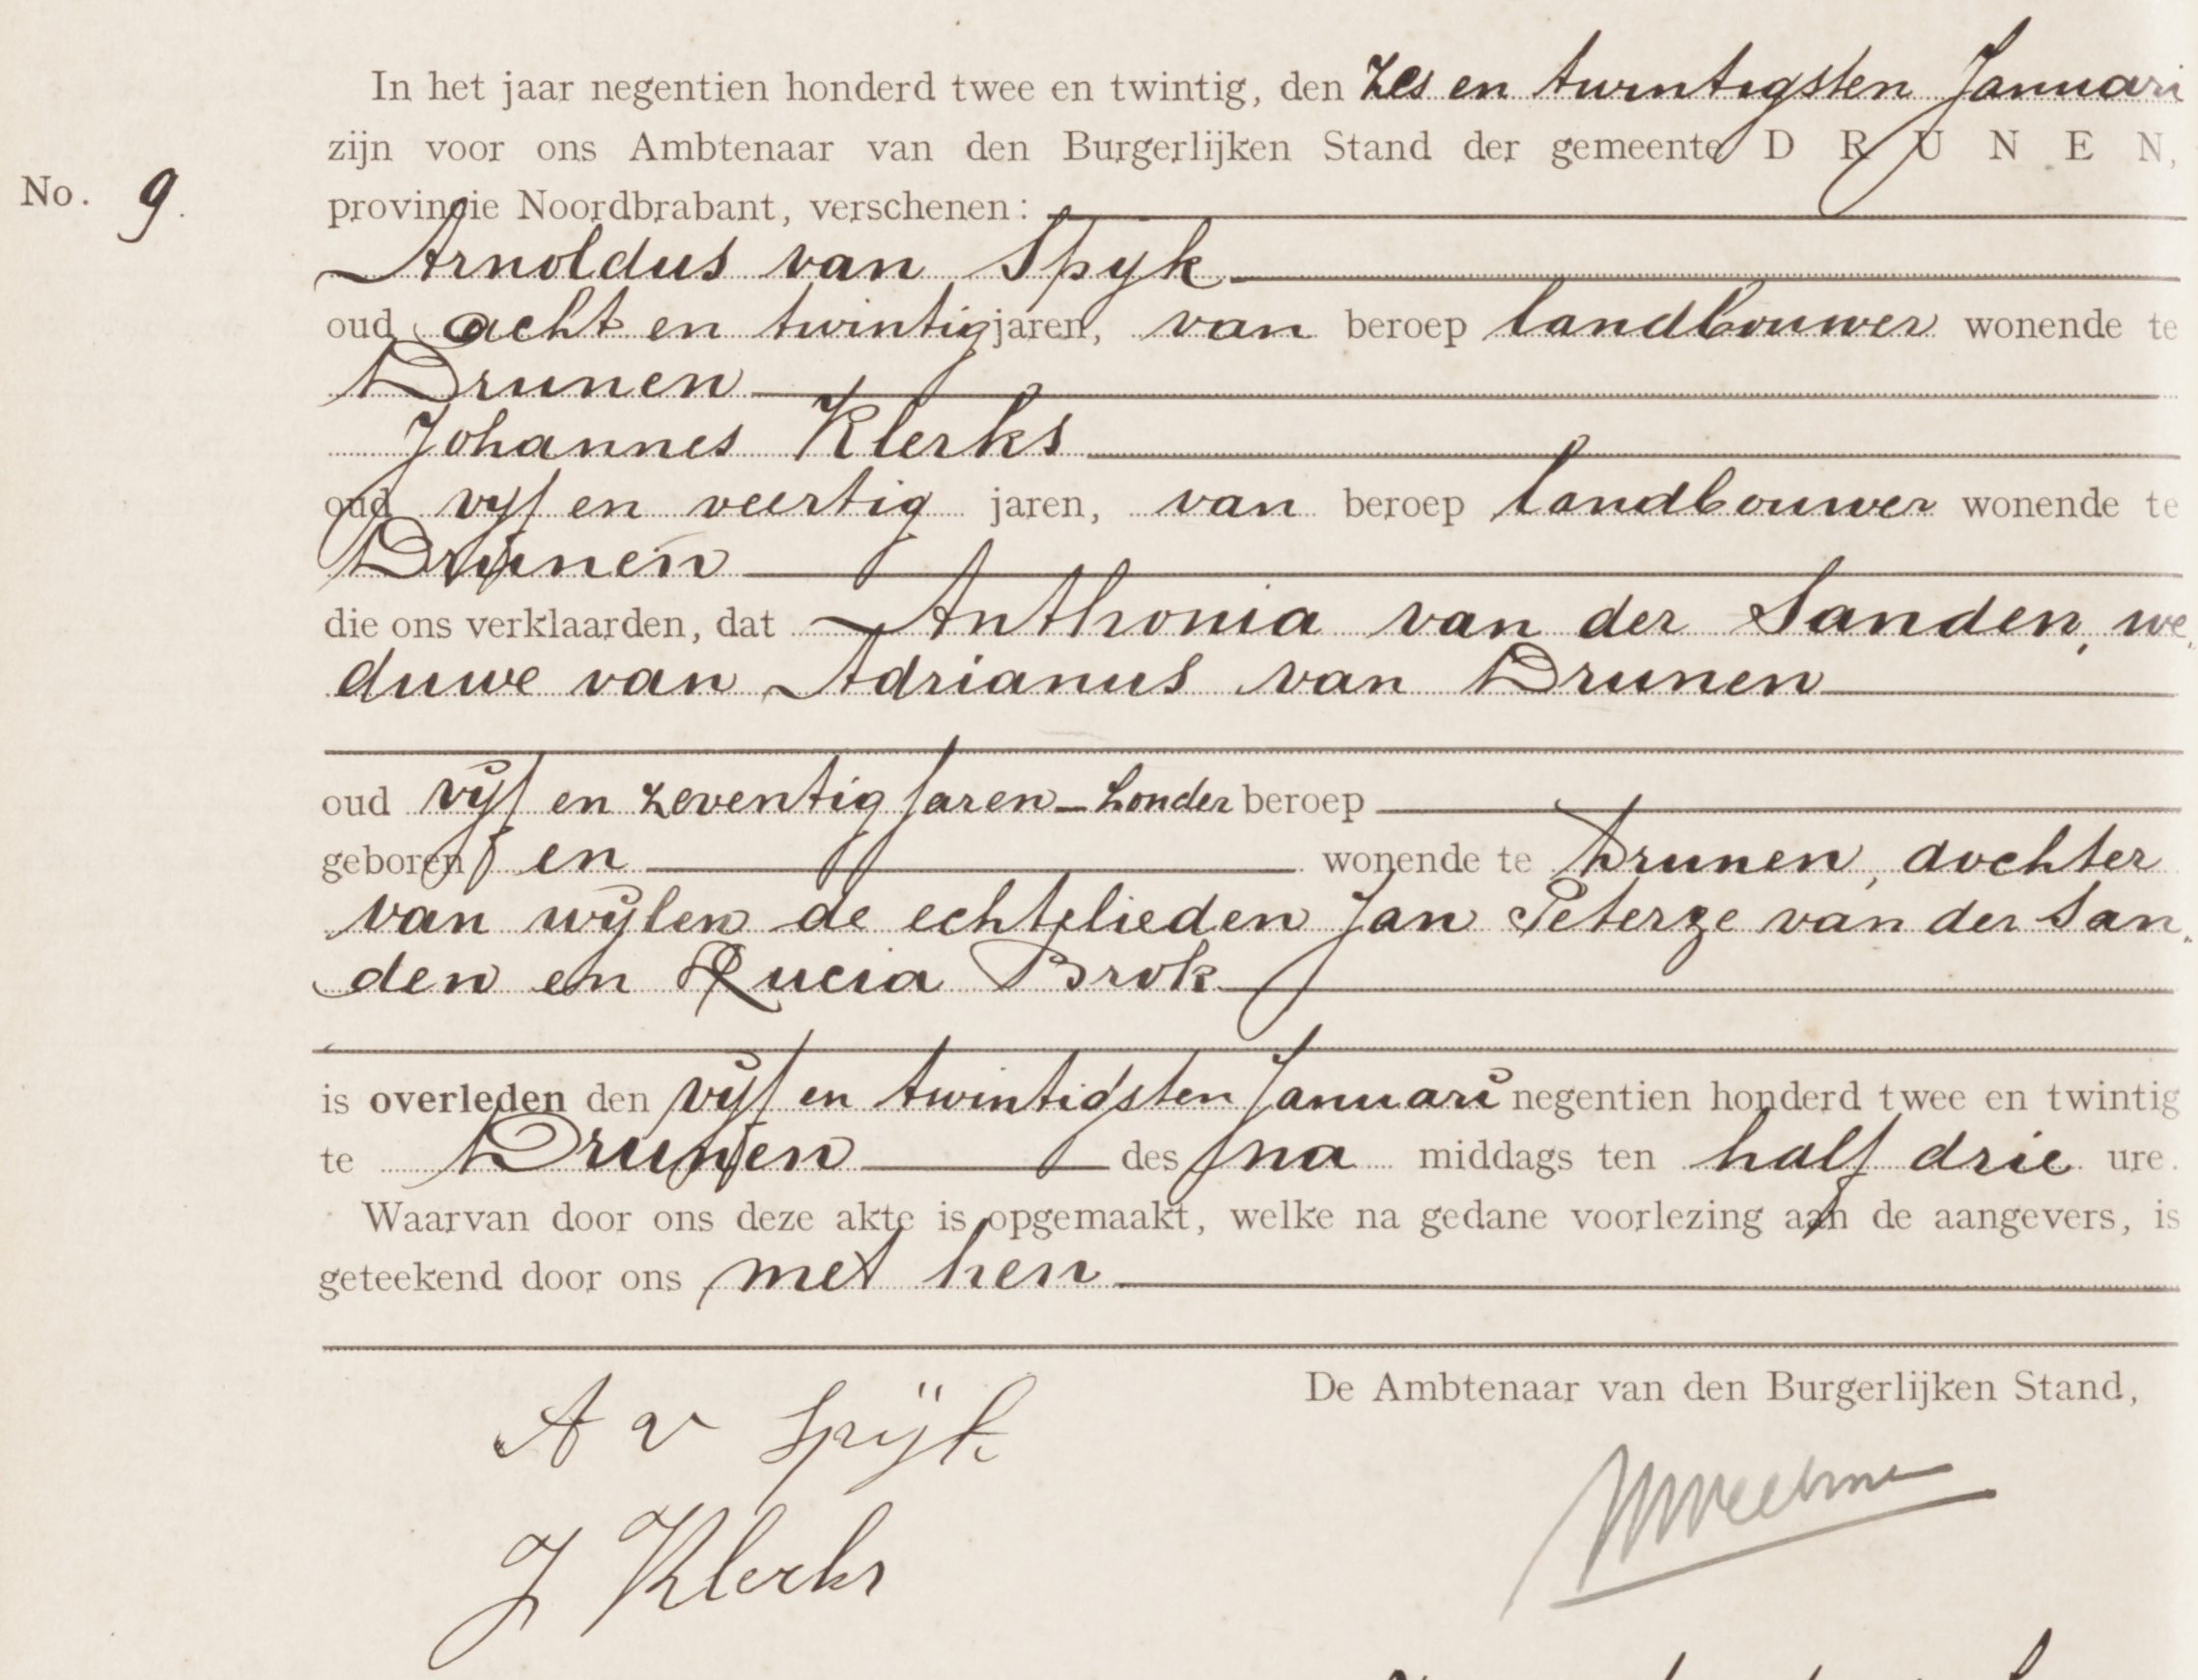 In het jaar negentien honderd twee en twintig, den zes en twintigsten Januari
zijn voor ons Ambtenaar van den Burgerlijken Stand der gemeente DRUNEN,
No. 9.
provincie Noordbrabant, verschenen:
Arnoldus van Spyk
oud acht en twintig jaren, van beroep landbouwer wonende te
Drunen
Johannes Klerks
oud vyf en veertig jaren, van beroep landbouwer wonende te
Drunen
die ons verklaarden, dat Anthonia van der Sanden, we„
duwe van Adrianus van Drunen
oud vijf en zeventig jaren zonder beroep
geboren en wonende te Drunen, dochter
van wijlen de echtelieden Jan Peterze van der San„
den en Lucia Brok
is overleden den vijf en twintigsten Januari negentien honderd twee en twintig
te Drunen des na middags ten half drie ure.
Waarvan door ons deze akte is opgemaakt, welke na gedane voorlezing aan de aangevers, is
geteekend door ons met hen
De Ambtenaar van den Burgerlijken Stand,
A v Spijk
J Klerks